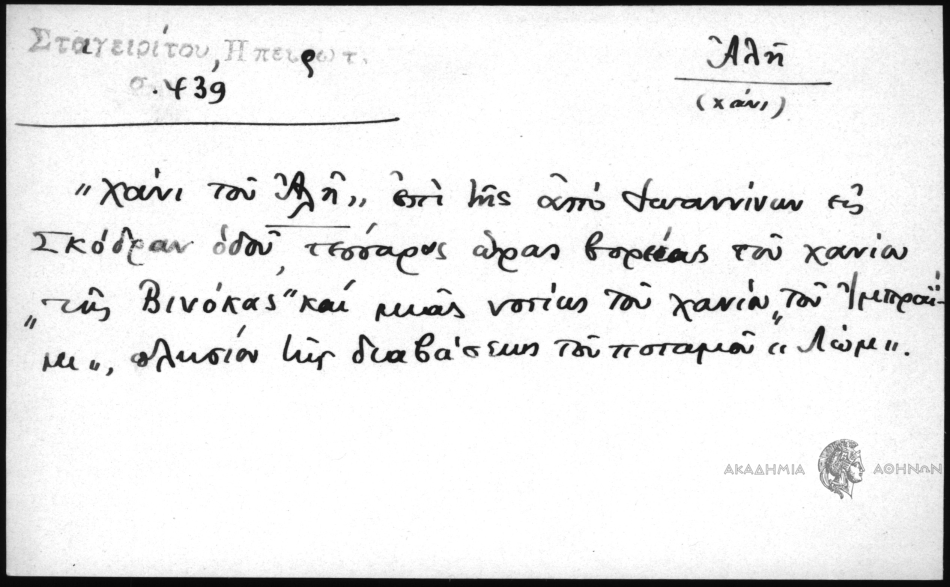 Σταγειρίτου, Ηπειρωτ.
σ. 439
Ἀλῆ
(χάνι)
"χάνι τοῦ Ἀλῆ", ἐπὶ τῆς ἀπὸ Ἰωαννίνων εἰς
Σκόδραν ὁδοῦ, τέσσαρας ὥρας βορείως τοῦ χανίου
"τῆς Βινόκας" καὶ μιᾶς νοτίως τοῦ χανίου "τοῦ Ἰμπραΐ-
μη", πλησίον τῆς διαβάσεως τοῦ ποταμοῦ "Λώμ".
ΑΚΑΔΗΜΙΑ ΑΘΗΝΩΝ